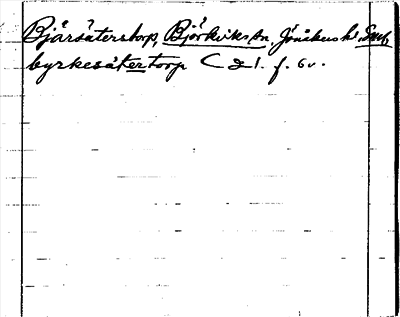 Bjärsäterstorp, Björkviks sn, Jönåkers hd, Sml,
byrkesätertorp C 21. f. 6v.